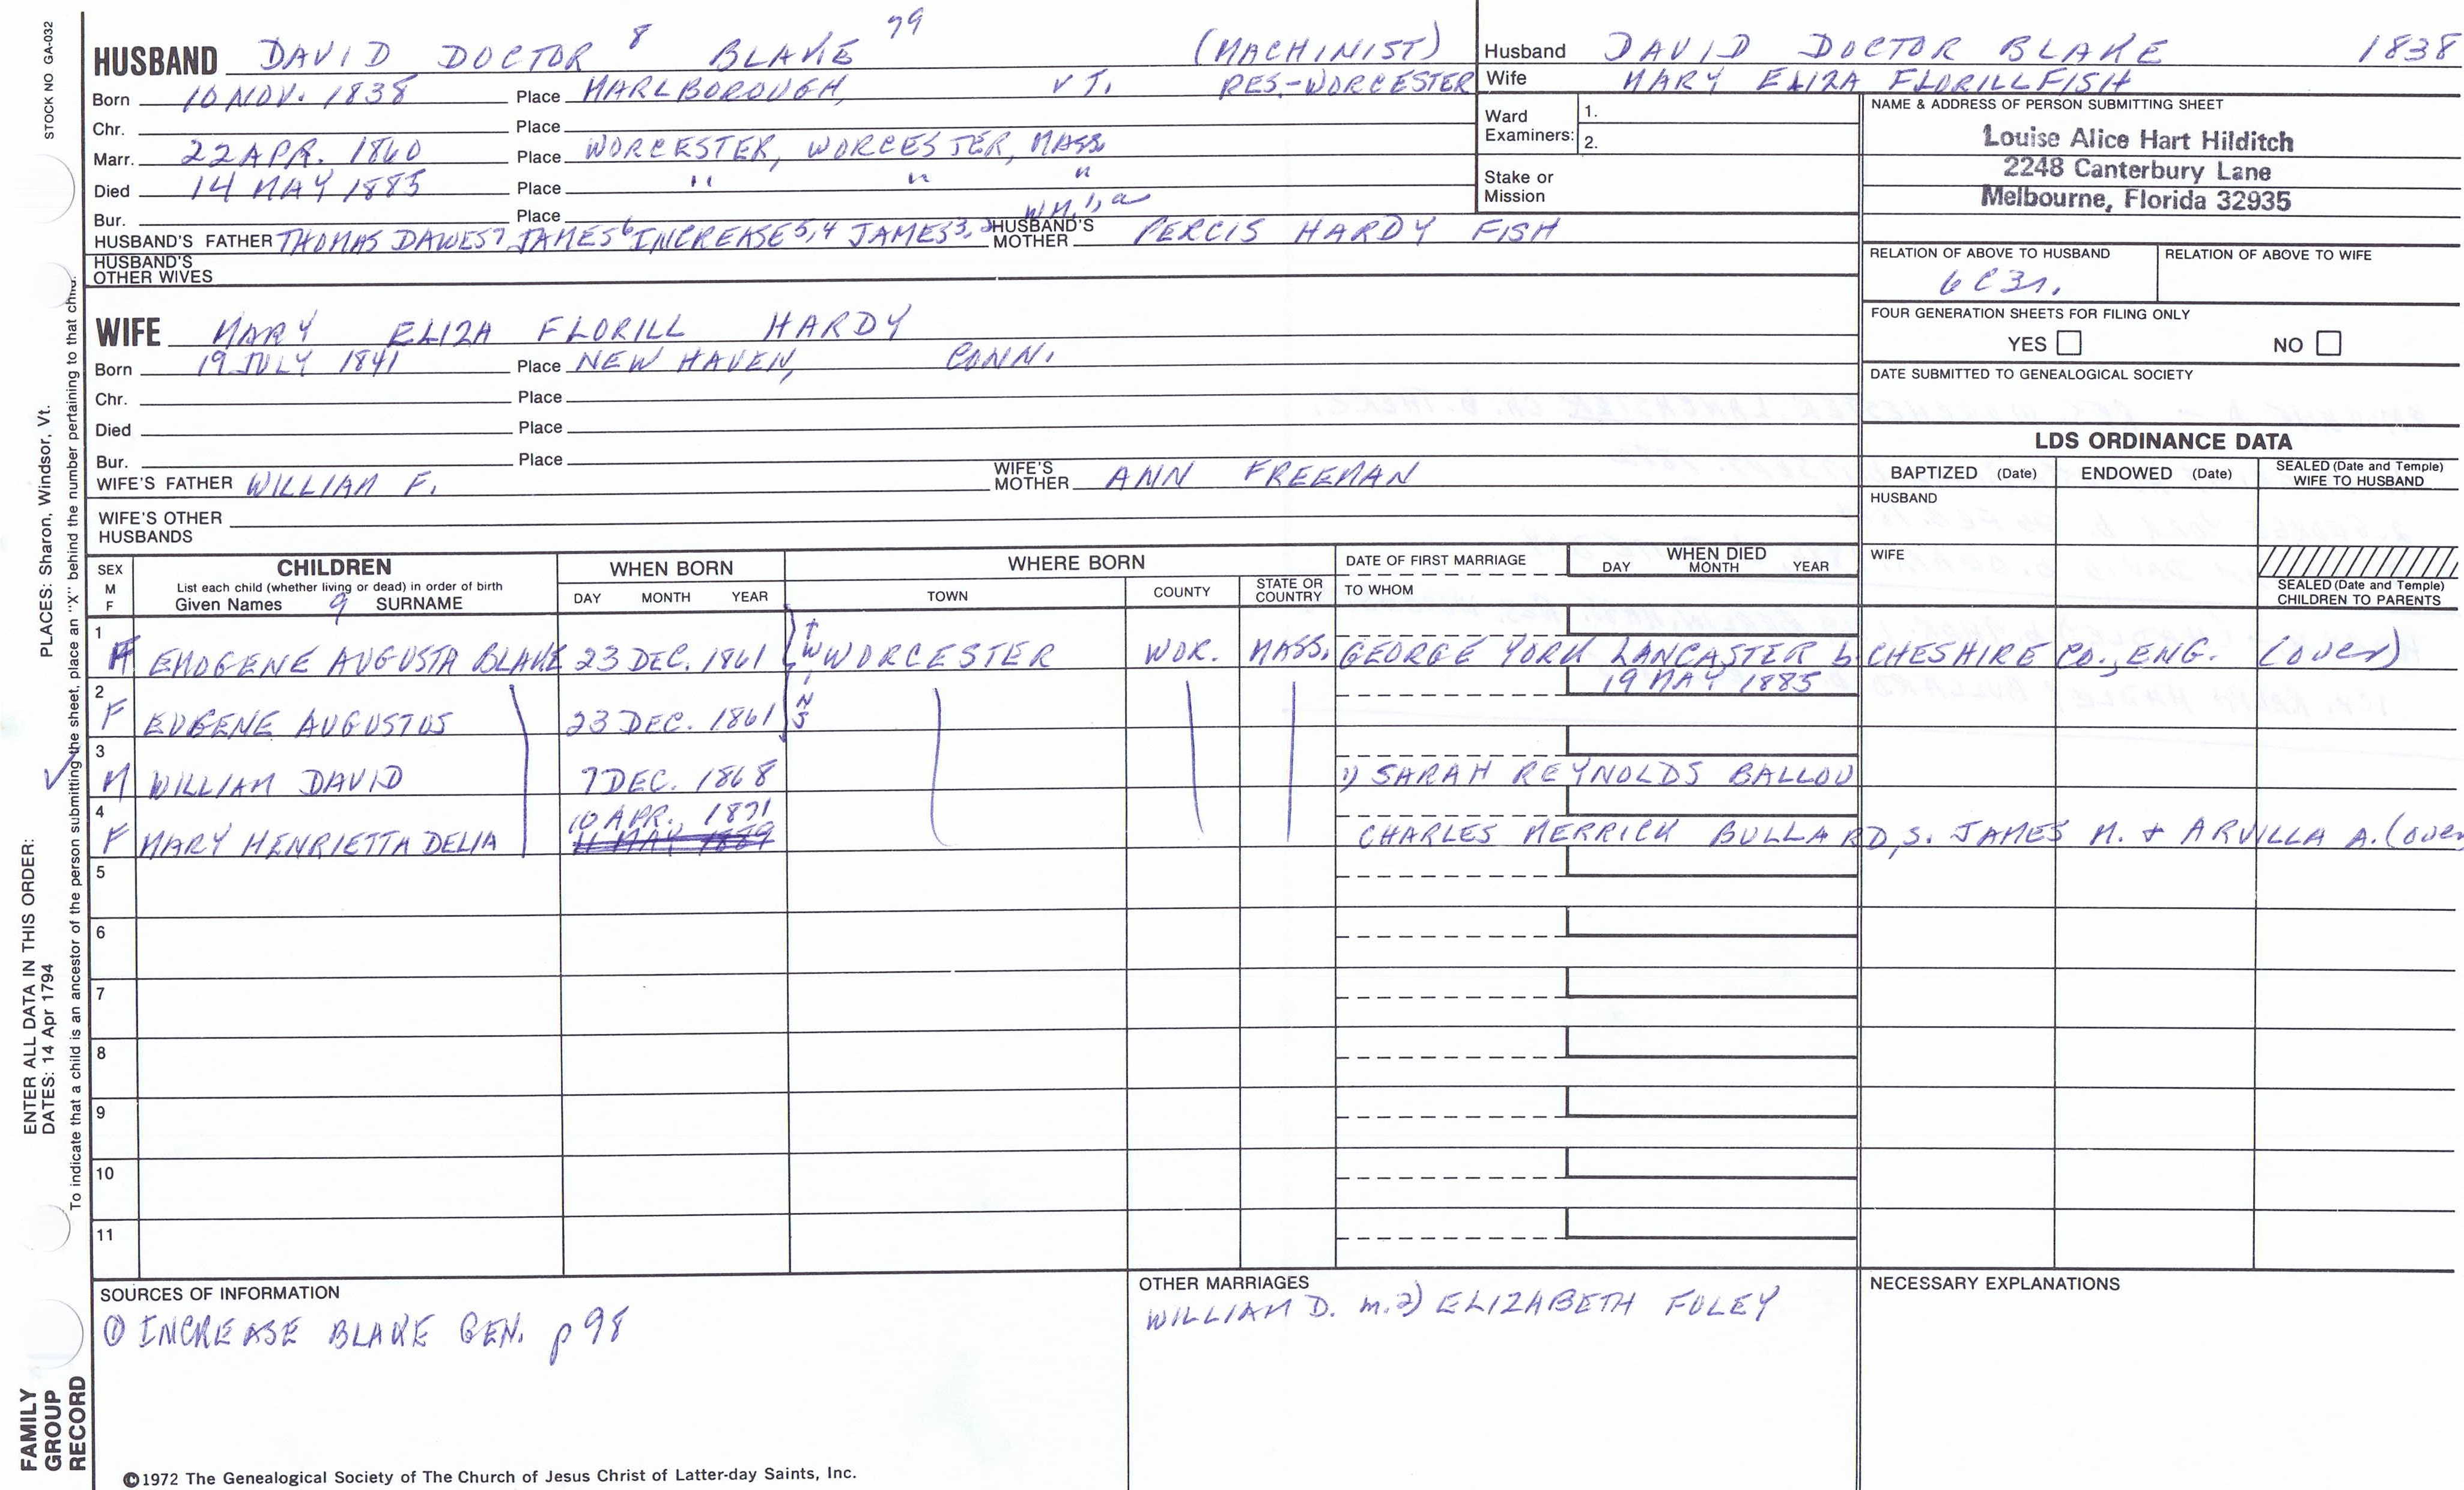 STOCK NO GA-032
PLACES: Sharon, Windsor, Vt.
ENTER ALL DATA IN THIS ORDER:
DATES: 14 Apr 1794
To indicate that a child is an ancestor of the person submitting the sheet, place an "X" behind the number pertaining to that child.
FAMILY GROUP RECORD
HUSBAND DAVID DOCTOR 8 BLAKE 79 (MACHINIST)
Born 10 NOV. 1838 Place MARLBOROUGH, VT. RES.-WORCESTER
Chr. Place
Marr. 22 APR. 1860 Place WORCESTER, WORCESTER, MASS.
Died 14 MAY 1885 Place " " "
Bur. Place WM. 1, a
HUSBAND'S FATHER THOMAS DAWES 7 JAMES 6 INCREASE 5,4 JAMES 3,2 HUSBAND'S MOTHER PERCIS HARDY FISH
HUSBAND'S OTHER WIVES
Husband DAVID DOCTOR BLAKE 1838
Wife MARY ELIZA FLORILL FISH
Ward Examiners: 1.
2.
Stake or Mission
NAME & ADDRESS OF PERSON SUBMITTING SHEET
Louise Alice Hart Hilditch
2248 Canterbury Lane
Melbourne, Florida 32935
RELATION OF ABOVE TO HUSBAND RELATION OF ABOVE TO WIFE
6C3r.
FOUR GENERATION SHEETS FOR FILING ONLY
YES NO
DATE SUBMITTED TO GENEALOGICAL SOCIETY
WIFE MARY ELIZA FLORILL HARDY
Born 19 JULY 1841 Place NEW HAVEN, CONN.
Chr. Place
Died Place
Bur. Place
WIFE'S FATHER WILLIAM F. WIFE'S MOTHER ANN FREEMAN
WIFE'S OTHER HUSBANDS
LDS ORDINANCE DATA
BAPTIZED (Date) ENDOWED (Date) SEALED (Date and Temple) WIFE TO HUSBAND
HUSBAND
WIFE
SEALED (Date and Temple) CHILDREN TO PARENTS
SEX M F CHILDREN WHEN BORN WHERE BORN DATE OF FIRST MARRIAGE WHEN DIED
List each child (whether living or dead) in order of birth
Given Names 9 SURNAME DAY MONTH YEAR TOWN COUNTY STATE OR COUNTRY TO WHOM DAY MONTH YEAR
1 F EMOGENE AUGUSTA BLAKE 23 DEC. 1861 TWINS WORCESTER WOR. MASS. GEORGE YORK LANCASTER b. CHESHIRE CO., ENG. (over)
2 F EUGENE AUGUSTUS 23 DEC. 1861 19 MAY 1885
3 M WILLIAM DAVID 7 DEC. 1868 1) SARAH REYNOLDS BALLOU
4 F MARY HENRIETTA DELIA 10 APR. 1871 11 MAY 1869 CHARLES MERRICK BULLARD, S. JAMES M. + ARVILLA A. (over
5
6
7
8
9
10
11
SOURCES OF INFORMATION
① INCREASE BLAKE GEN. p 98
OTHER MARRIAGES
WILLIAM D. m. 2) ELIZABETH FOLEY
NECESSARY EXPLANATIONS
©1972 The Genealogical Society of The Church of Jesus Christ of Latter-day Saints, Inc.